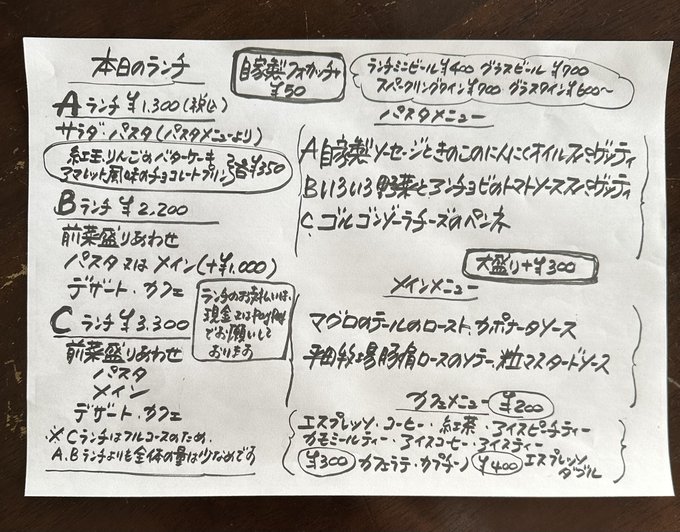 本日のランチ
Aランチ ¥1,300(税込)
サラダ・パスタ(パスタメニューより)
紅玉りんごのバターケーキ
アマレット風味のチョコレートプリン
各¥350
Bランチ ¥2,200
前菜盛りあわせ
パスタ又はメイン(+¥1,000)
デザート・カフェ
Cランチ ¥3,300
前菜盛りあわせ
パスタ
メイン
デザート・カフェ
※Cランチはフルコースのため、
A.Bランチよりも全体の量は少なめです
ランチのお支払いは、
現金又はPayPay
でお願いして
おります
自家製フォカッチャ
¥50
ランチミニビール¥400 グラスビール¥700
スパークリングワイン¥700 グラスワイン¥600〜
パスタメニュー
A 自家製ソーセージときのこのにんにくオイルスパゲッティ
B いろいろ野菜とアンチョビのトマトソーススパゲッティ
C. ゴルゴンゾーラチーズのペンネ
大盛り+¥300
メインメニュー
マグロのテールのロースト、カポナータソース
平田牧場豚肩ロースのソテー、粒マスタードソース
カフェメニュー ¥200
エスプレッソ・コーヒー・紅茶・アイスピーチティー
カモミールティー・アイスコーヒー・アイスティー
¥300 カフェラテ・カプチーノ ¥400 エスプレッソ
ダブル